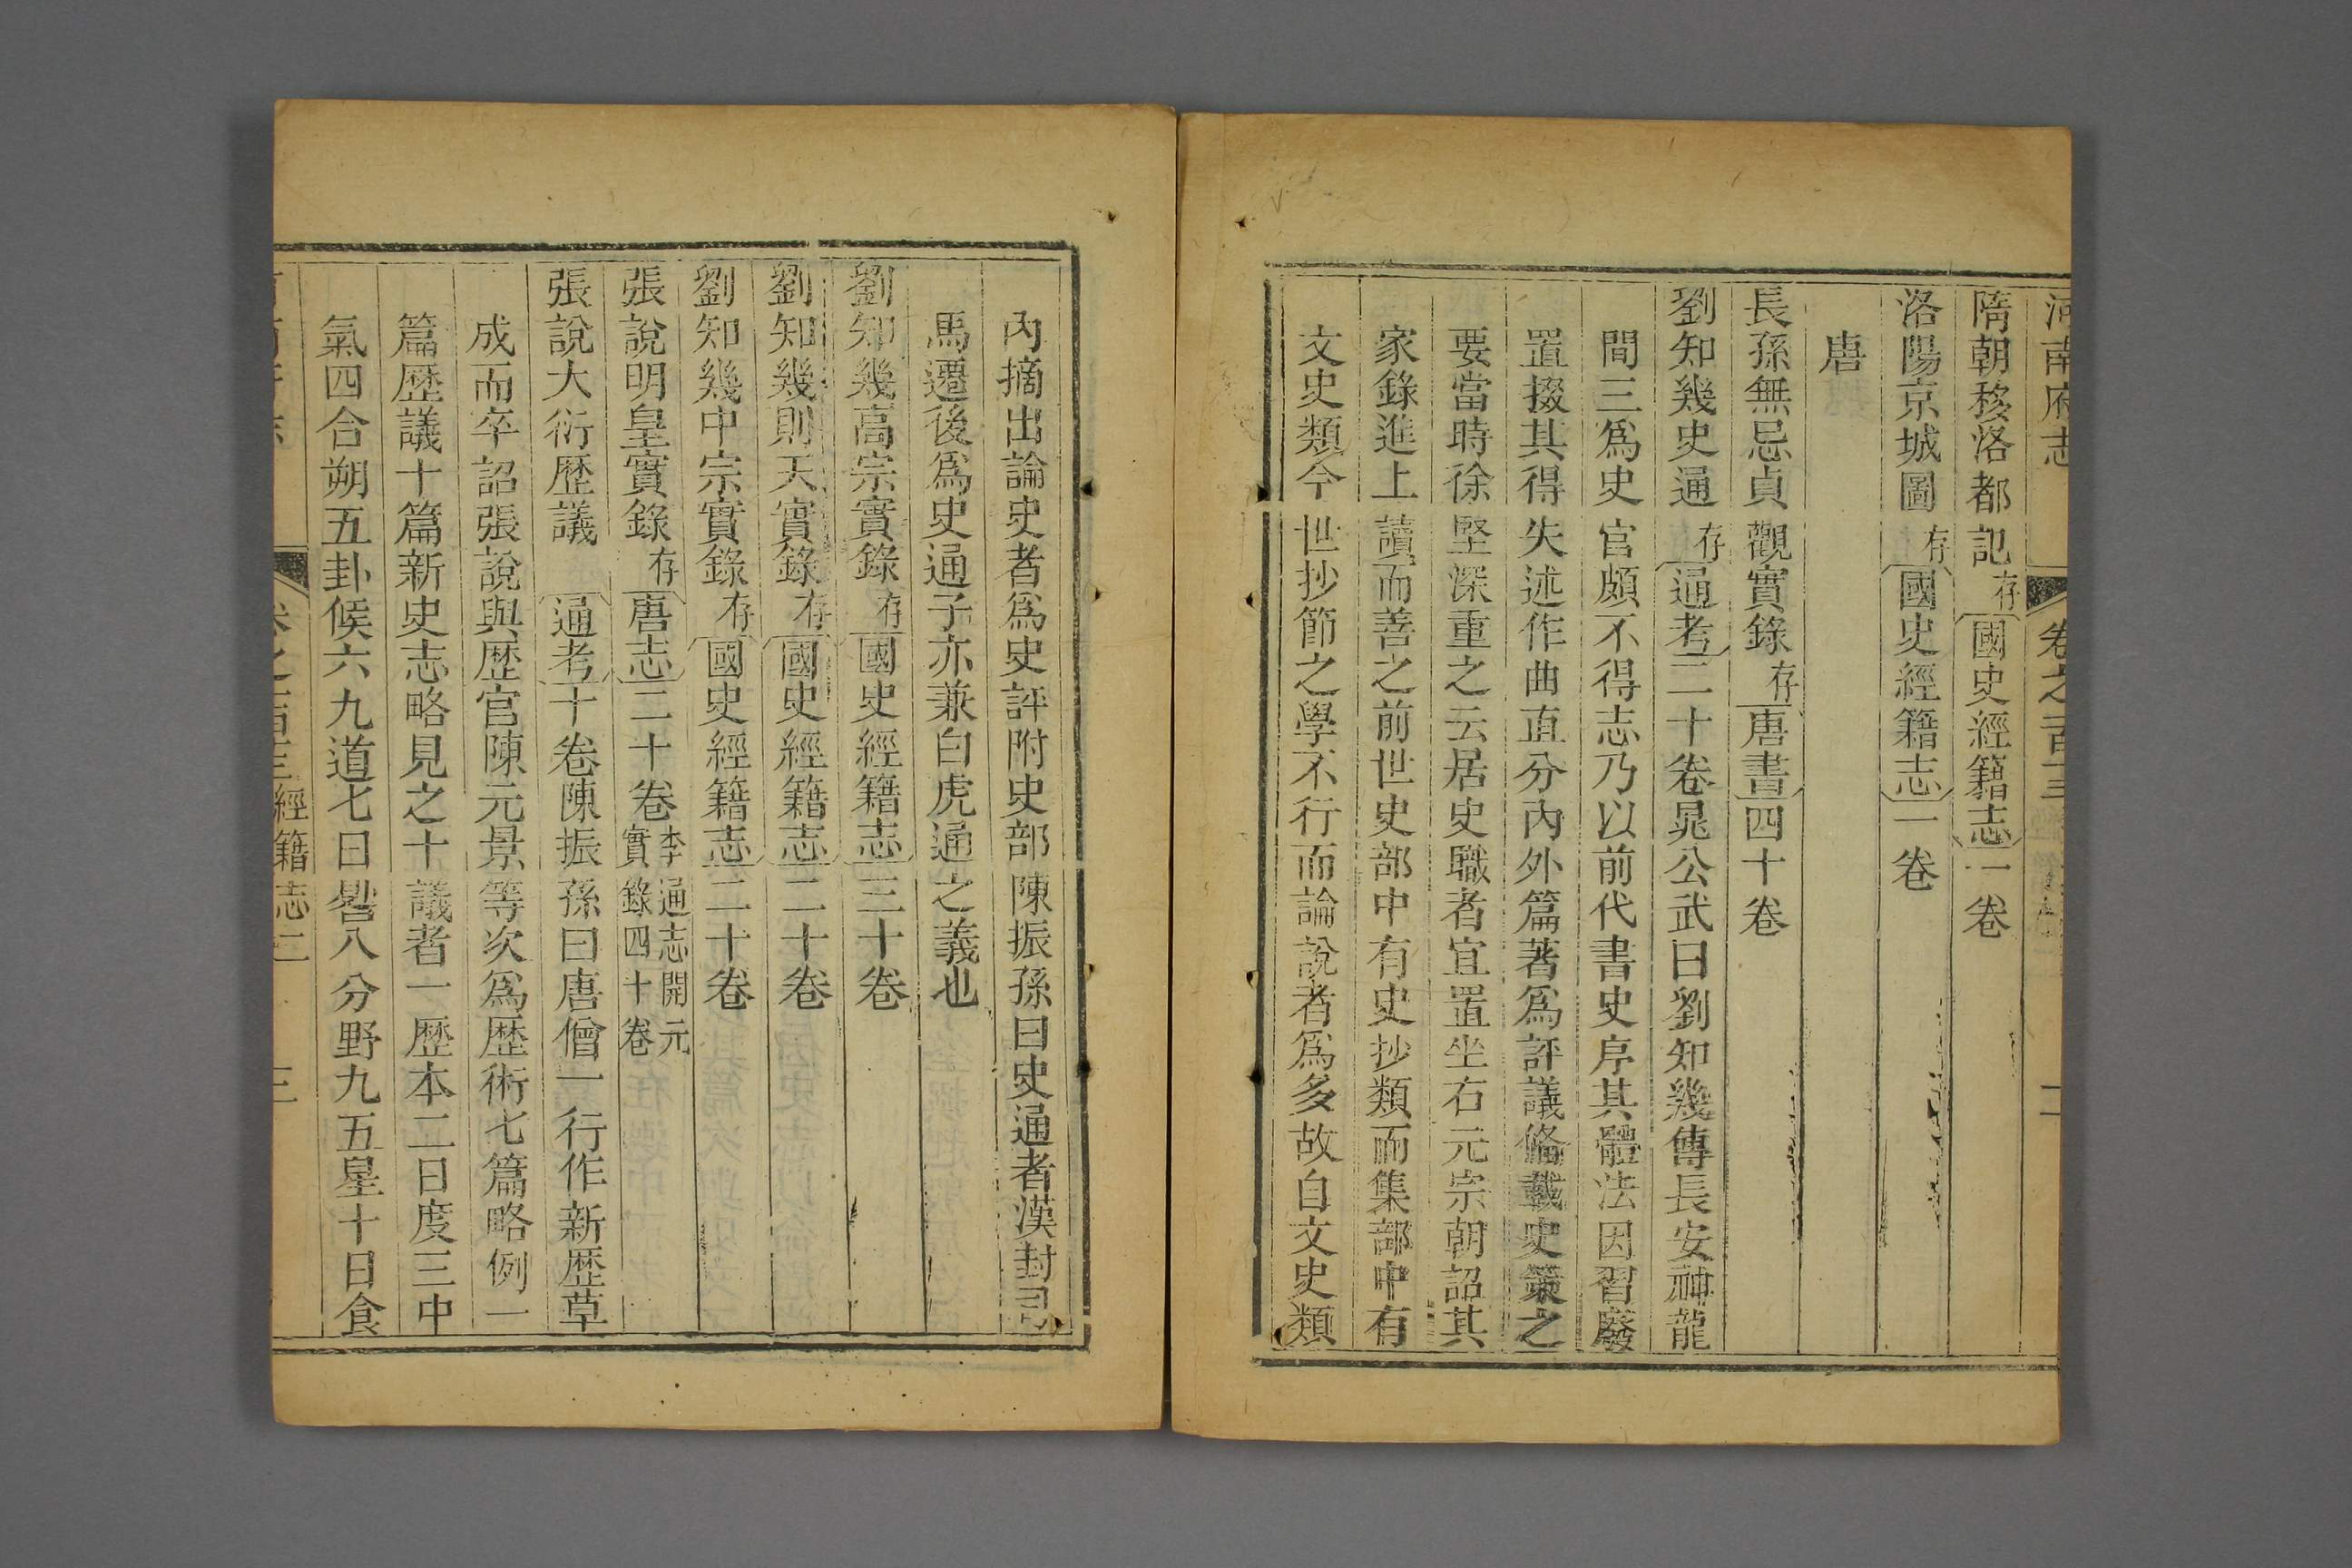 河南府志 卷之一百三 二
隋朝移洛都記存國史經籍志一卷
洛陽京城圖存國史經籍志一卷
唐
長孫無忌貞觀實錄存唐書四十卷
劉知幾史通存通考二十卷晁公武曰劉知幾傳長安神龍
間三爲史官頗不得志乃以前代書史序其體法因習廢
置掇其得失述作曲直分內外篇著爲評議僃載史策之
要當時徐堅深重之云居史職者宜置坐右元宗朝詔其
家錄進上讀而善之前世史部中有史抄類而集部中有
文史類今世抄節之學不行而論說者爲多故自文史類
內摘出論史者爲史評附史部陳振孫曰史通者漢封司
馬遷後爲史通子亦兼白虎通之義也
劉知幾高宗實錄存國史經籍志三十卷
劉知幾則天實錄存國史經籍志二十卷
劉知幾中宗實錄存國史經籍志二十卷
張說明皇實錄存唐志二十卷李通志開元實錄四十卷
張說大衍歷議通考十卷陳振孫曰唐僧一行作新歷草
成而卒詔張說與歷官陳元景等次爲歷術七篇略例一
篇歷議十篇新史志略見之十議者一歷本二日度三中
氣四合朔五卦候六九道七日晷八分野九五星十日食
卷之一百三 經籍志二 三